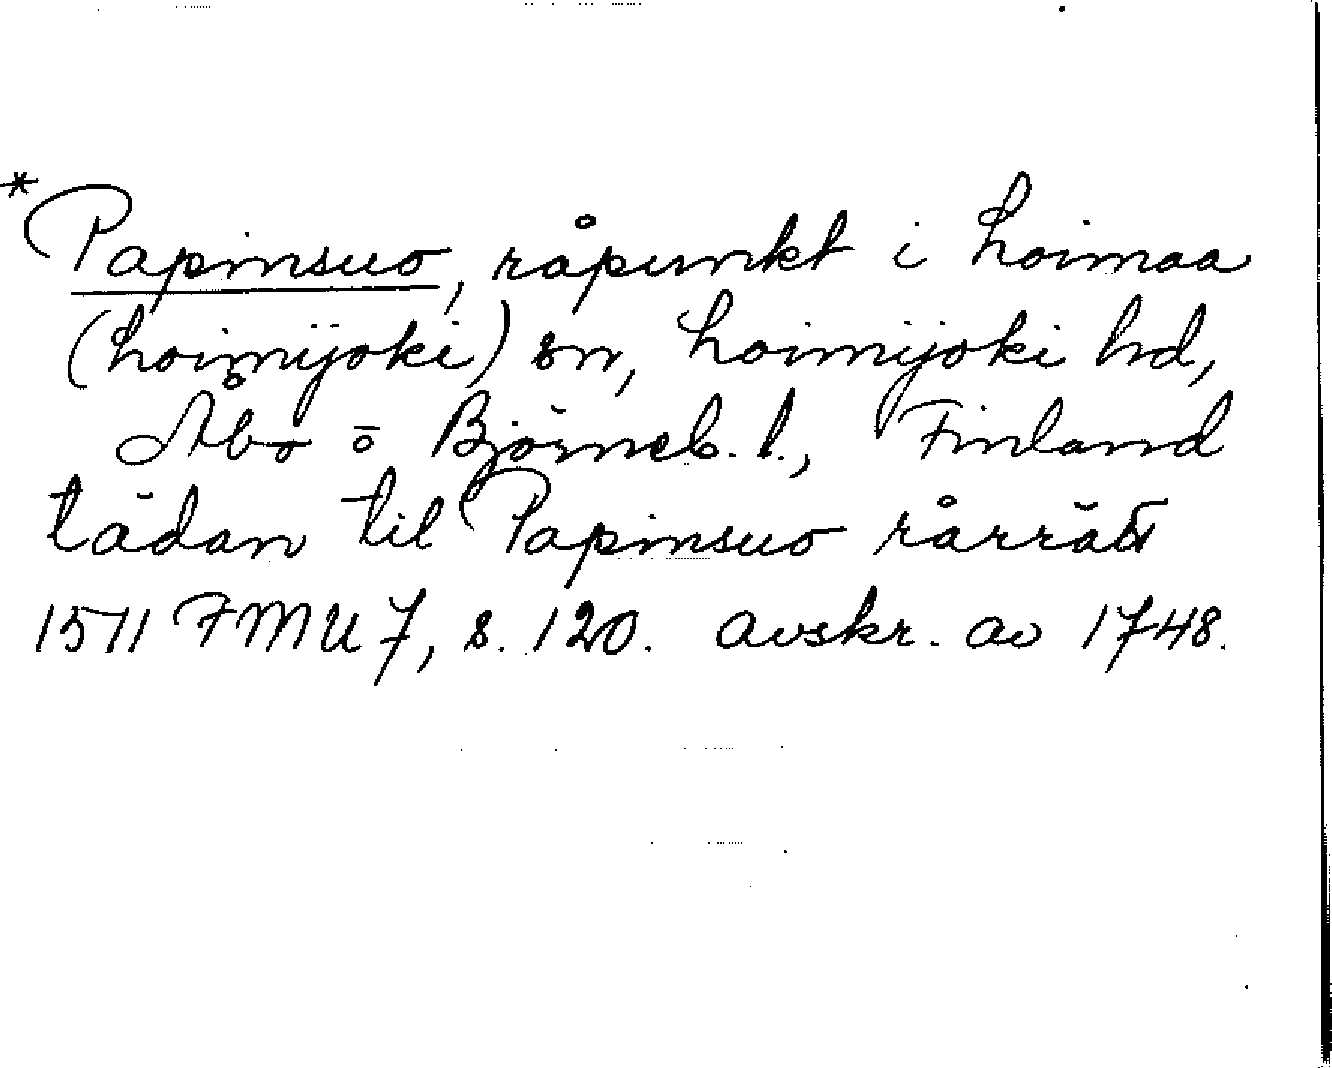 *Papinsuo, råpunkt i Loimaa
(Loimijoki) sn, Loimijoki hd,
Åbo o Björneb. l., Finland
tädan til Papinsuo rårrätt
1511 FMU 7, s. 120. Avskr. av 1748.